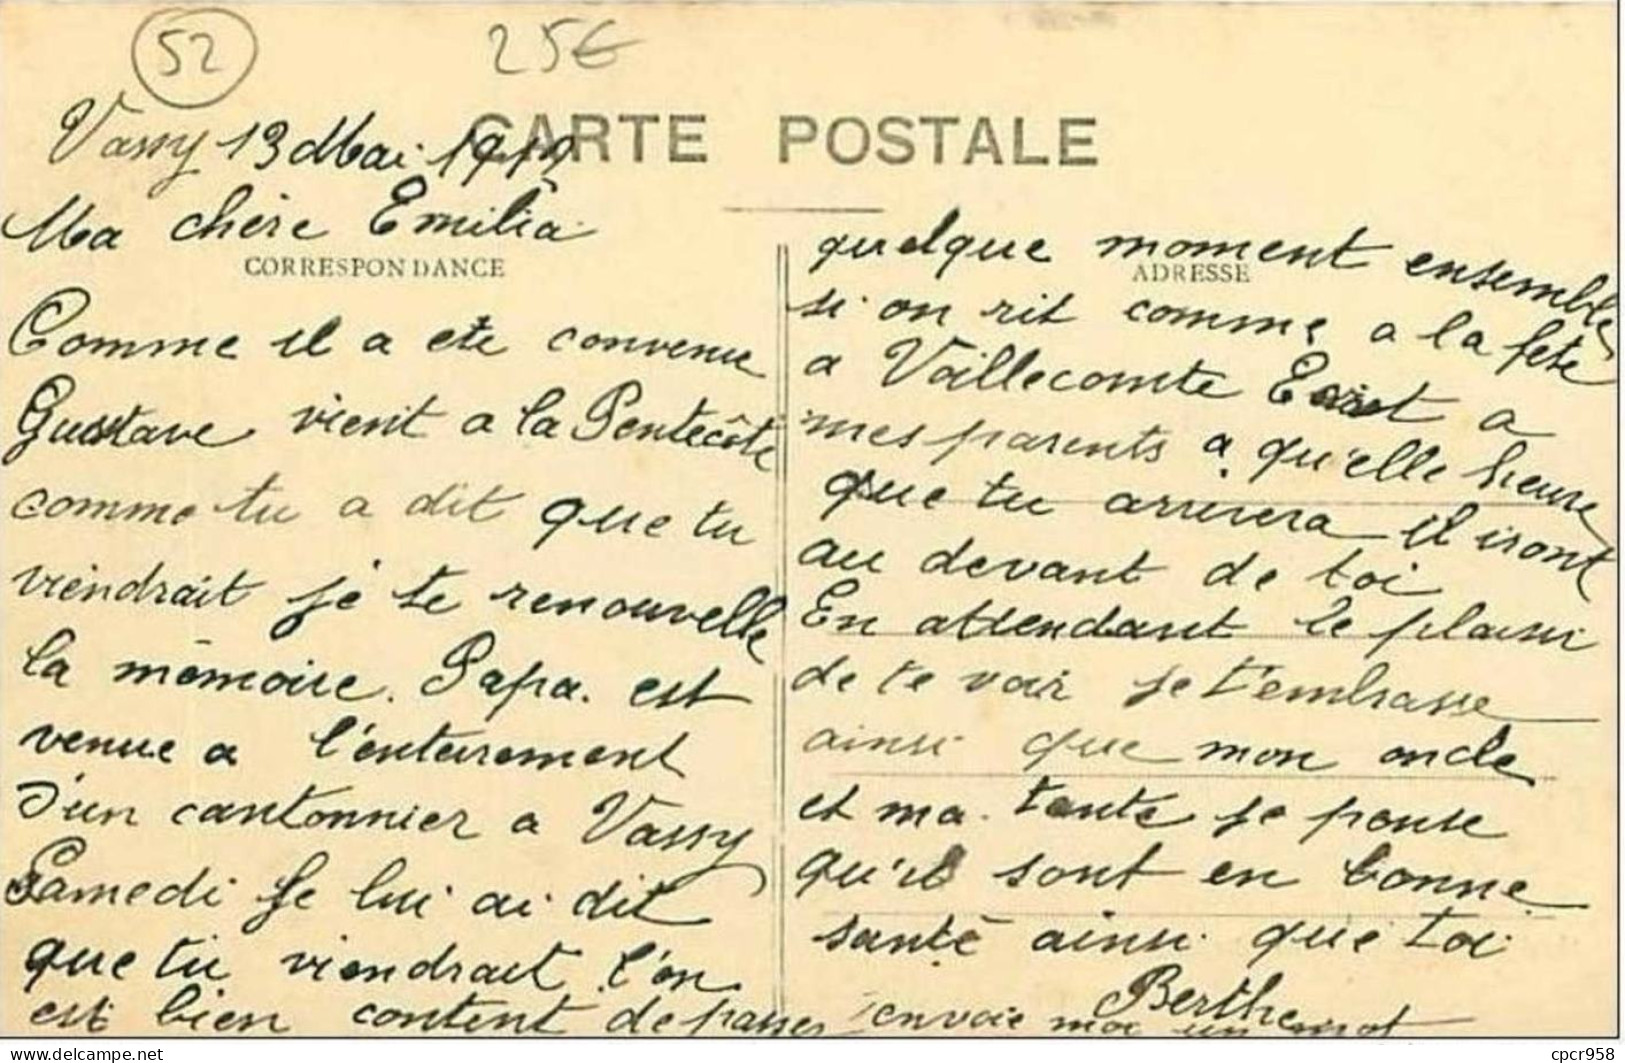 52
25€
CARTE POSTALE
Vassy 13 Mai 1919
Ma chère Emilia
CORRESPONDANCE
Comme il a ete convenue
Gustave vient a la Pentecôte
comme tu a dit que tu
viendrait je te renouvelle
la mémoire. Papa. est
venue a l'enterrement
d'un cantonnier a Vassy
Samedi Je lui ai dit
que tu viendrait l'on
est bien content de passer
ADRESSE
quelque moment ensemble
si on rit comme a la fete
a Voillecomte Ecrit a
mes parents a qu'elle heure
que tu arrivera il iront
au devant de toi
En attendant le plaisir
de te voir je t'embrasse
ainsi que mon oncle
et ma tante je pense
qu'il sont en bonne
santé ainsi que toi
Berthe
envoie moi un mot
cpcr958